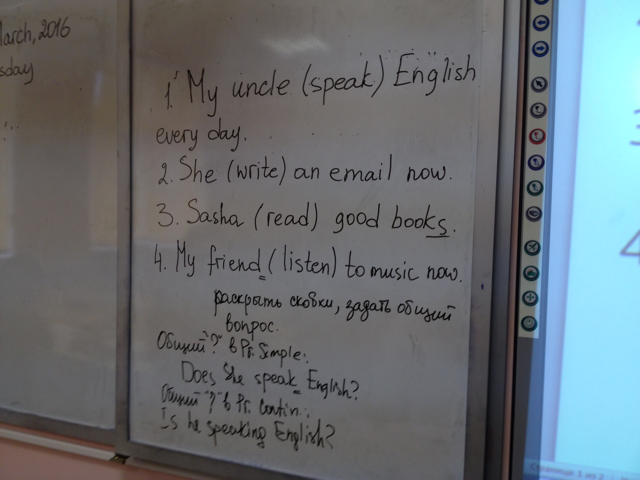 March, 2016
sday
1. My uncle (speak) English
every day.
2. She (write) an email now.
3. Sasha (read) good books.
4. My friend (listen) to music now.
раскрыть скобки, задать общий
вопрос.
Общий "?" в Pr. Simple:
Does she speak English?
Общий "?" в Pr. Contin.:
Is he speaking English?
3
4
Страница 1 из 2